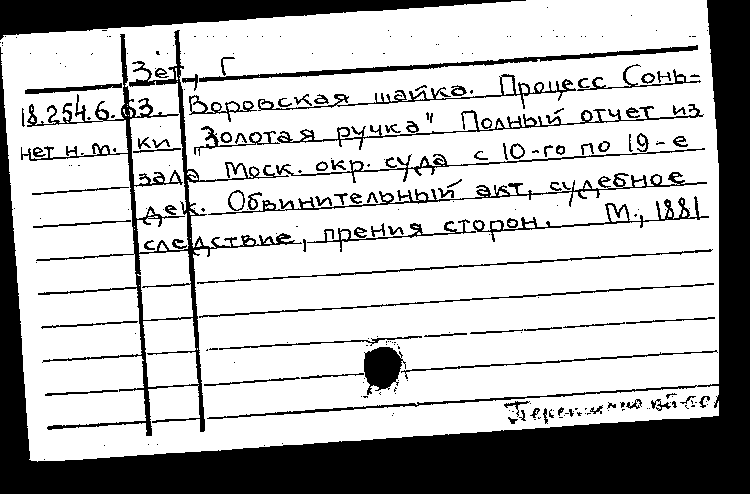 Зет, Г
18.254.6.63. Воровская шайка. Процесс Сонь=
нет н.т. ки „Золотая ручка". Полный отчет из
зала Моск. окр. суда с 10-го по 19-е
дек. Обвинительный акт, судебное
следствие, прения сторон. М., 1881